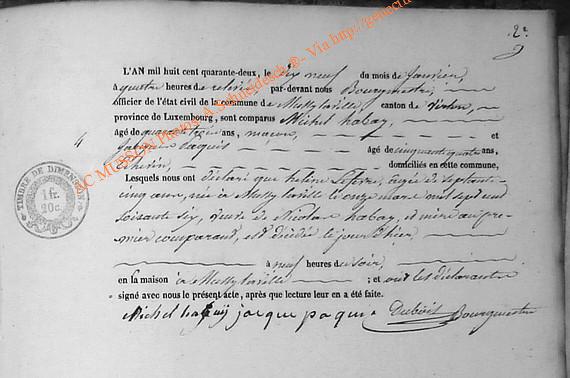 2e
L'AN mil huit cent quarante-deux, le dix neuf du mois de Janvier,
à quatre heures de relevée, par-devant nous Bourgmestre,
officier de l'état civil de la commune de Mussy la ville, canton de Virton,
province de Luxembourg, sont comparus Michel habay,
4
âgé de quarante trois ans, maçon, et
Jacques Paquis âgé de cinquante quatre ans,
domiciliés en cette commune,
Lesquels nous ont déclaré que heline Lefevre, agée de septante
cinq ans, née à Mussy la ville le onze mars mil sept cent
soixante six, veuve de Nicolas habay, et mère au pre-
mier comparant, est décédée le jour d'hier
à neuf heures du soir,
en la maison à Mussy la ville ; et ont les déclarants
signé avec nous le présent acte, après que lecture leur en a été faite.
Michel habay jacque paquis Dubois Bourgmestre
TIMBRE DE DIMENSION
1 fr.
20 c.
AC MUSSY © Photos A. Schneidesch ®- Via http://geneact